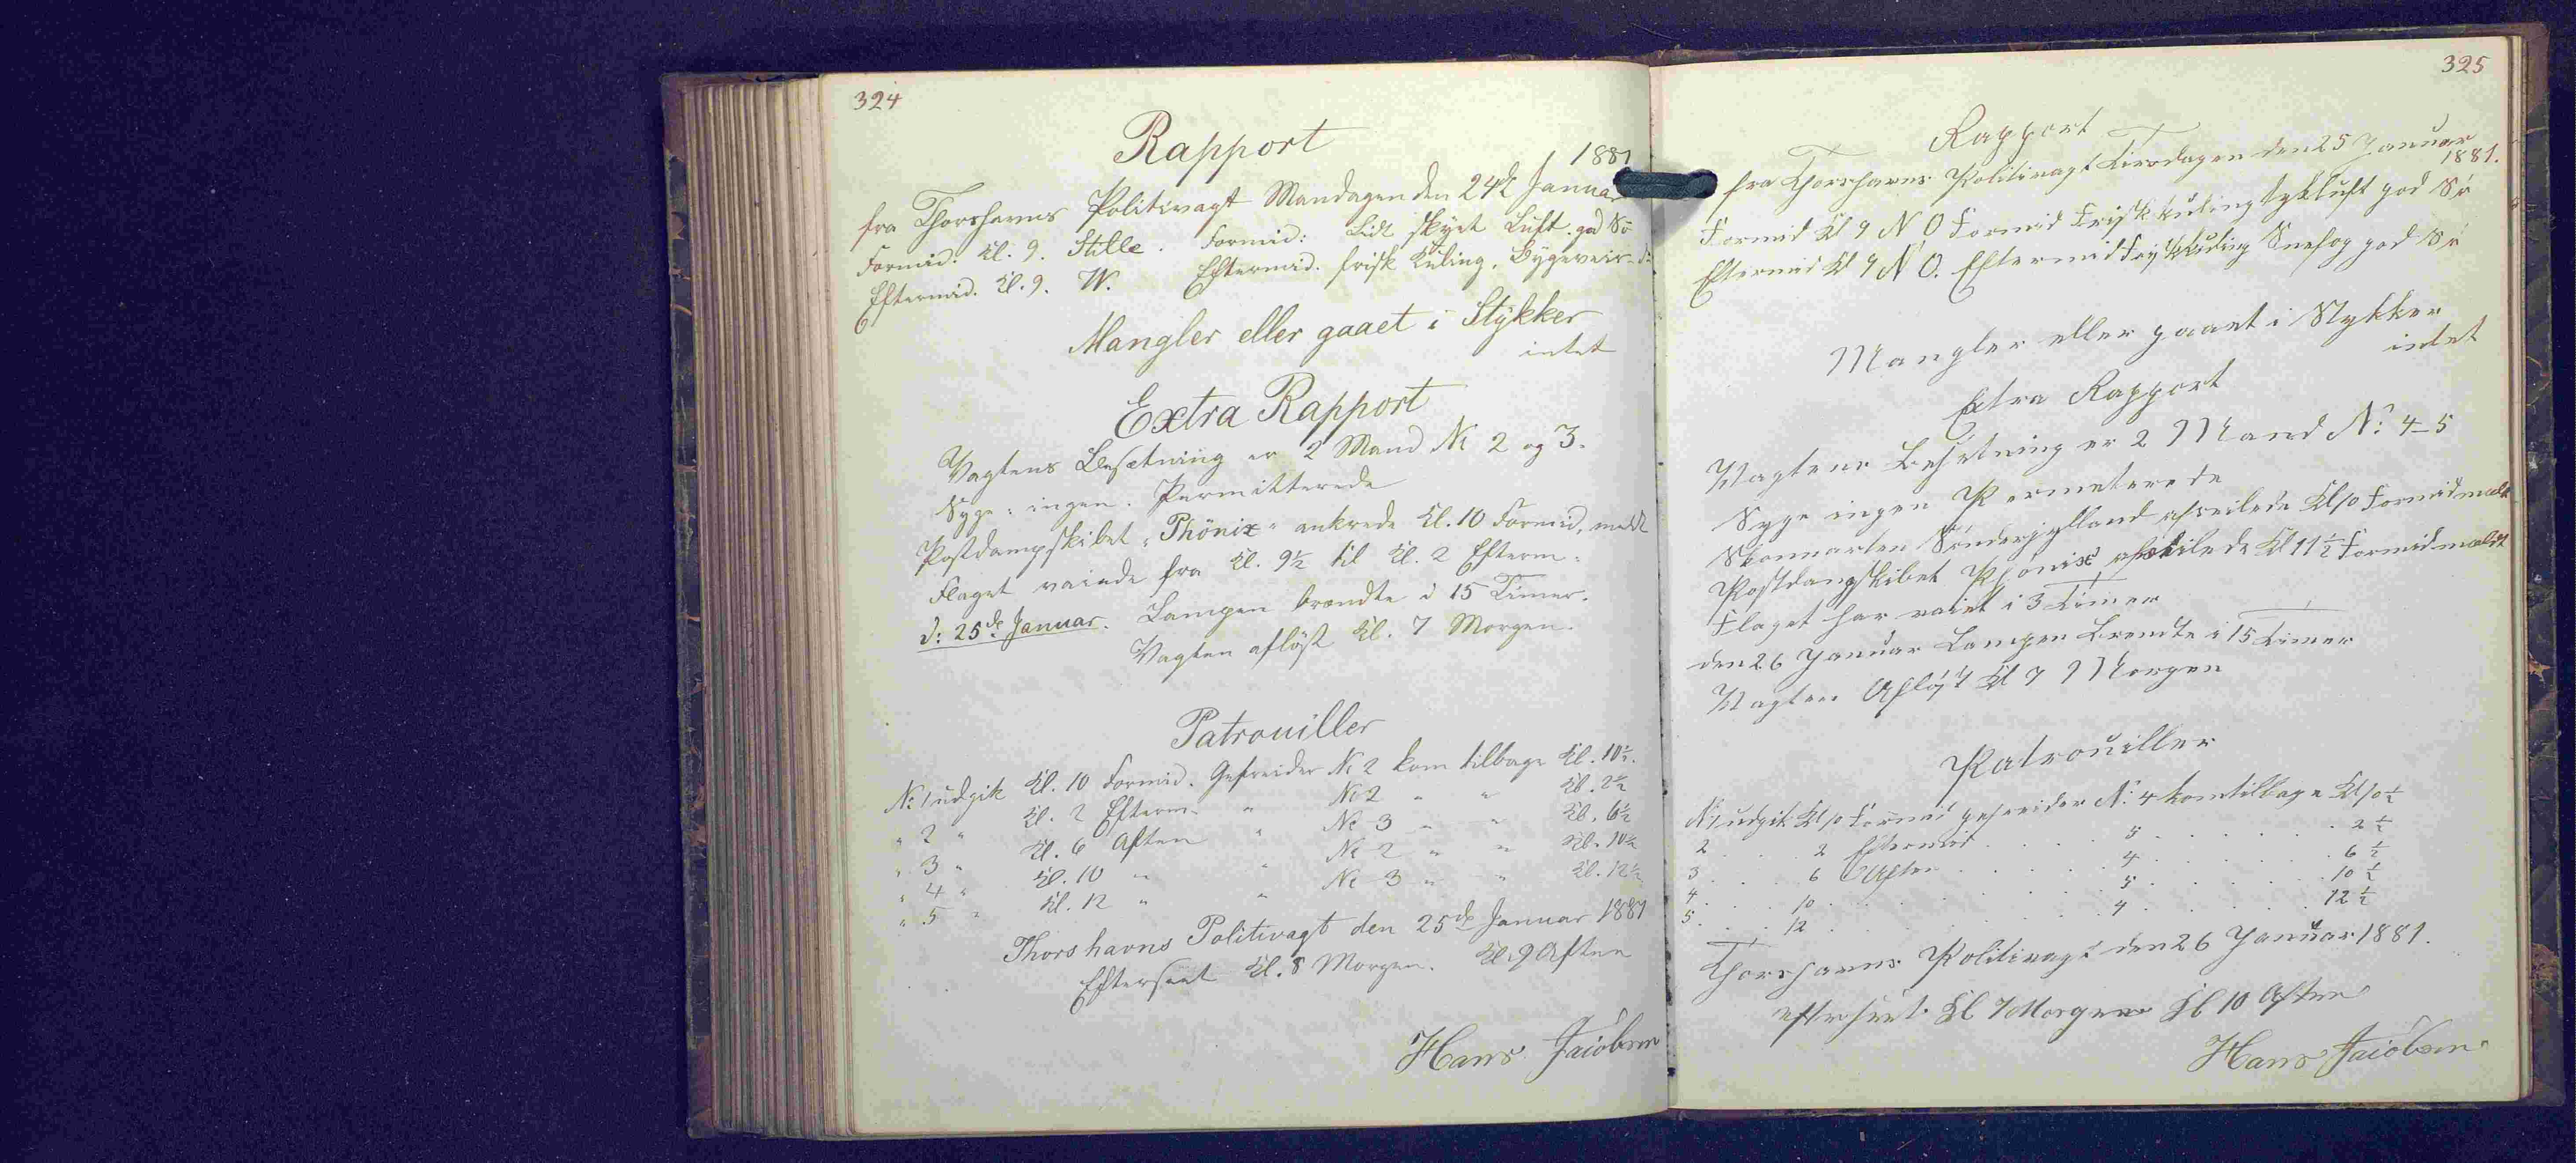 324
Rapport
1881
fra Thorshavns Politivagt Mandagen den 24de Januar
Formid. Kl. 9. Stille. Formid: Lidt skyet Luft. god Sö
Eftermid. Kl. 9. W. Eftermid. frisk Kuling. Bygeveir d:
Mangler eller gaaet i Stykker
intet
Extra Rapport
Vagtens Besætning er 2 Mand No 2 og 3.
Syge: ingen. Permitterede
Postdampskibet "Phönix" ankrede Kl. 10 Formid. meldt
Flaget vaiede fra Kl. 9½ til Kl. 2 Efterm.
d: 25de Januar. Lampen brændte i 15 Timer.
Vagten aflöst Kl. 7 Morgen.
Patrouiller
No 1 udgik Kl. 10 Formid. Gefreider No 2 kom tilbage Kl. 10½.
" 2 " Kl. 2 Efterm. " No 2 " " Kl. 2½
" 3 " Kl. 6 Aften " No 3 " " Kl. 6½
" 4 " Kl. 10 " " No 2 " " Kl. 10½
" 5 " Kl. 12 " " No 3 " " Kl. 12½
Thorshavns Politivagt den 25de Januar 1881
Efterseet Kl. 8 Morgen. Kl. 9 Aften
Hans Jacobsen
325
Rapport
fra Thorshavns Politivagt Tirsdagen den 25 Januar
1881.
Formid Kl 9 N O Formid Frisk kuling tykluft god Sö
Eftermid Kl 9 N O. Eftermid Frisk Kuling Snefog god Sö
Mangler eller gaaet i Stykker
intet
Extra Rapport
Vagtens Besetning er 2 Mand No: 4-5
Syge ingen Permeterede
Skonnarten Sönderjylland afseilede Kl 10 Formid meldt
Postdampskibet Phönix afseilede Kl 11½ Formid meldt
Flaget har vaiet i 3 Timer
den 26 Januar Lampen Brendte i 15 Timer
Vagten Aflöst Kl 7 Morgen
Patrouiller
No 1 udgik Kl 10 Formid gefreider No: 4 kom tilbage Kl 10½
2 . . 2 Eftermid . . 5 . . . . 2½
3 . . 6 Aften . . 4 . . . . 6½
4 . . 10 . . . . 5 . . . . 10½
5 . . 12 . . . . 4 . . . . 12½
Thorshavns Politivagt den 26 Januar 1881.
efterseet Kl 7 Morgen Kl 10 Aften
Hans Jacobsen